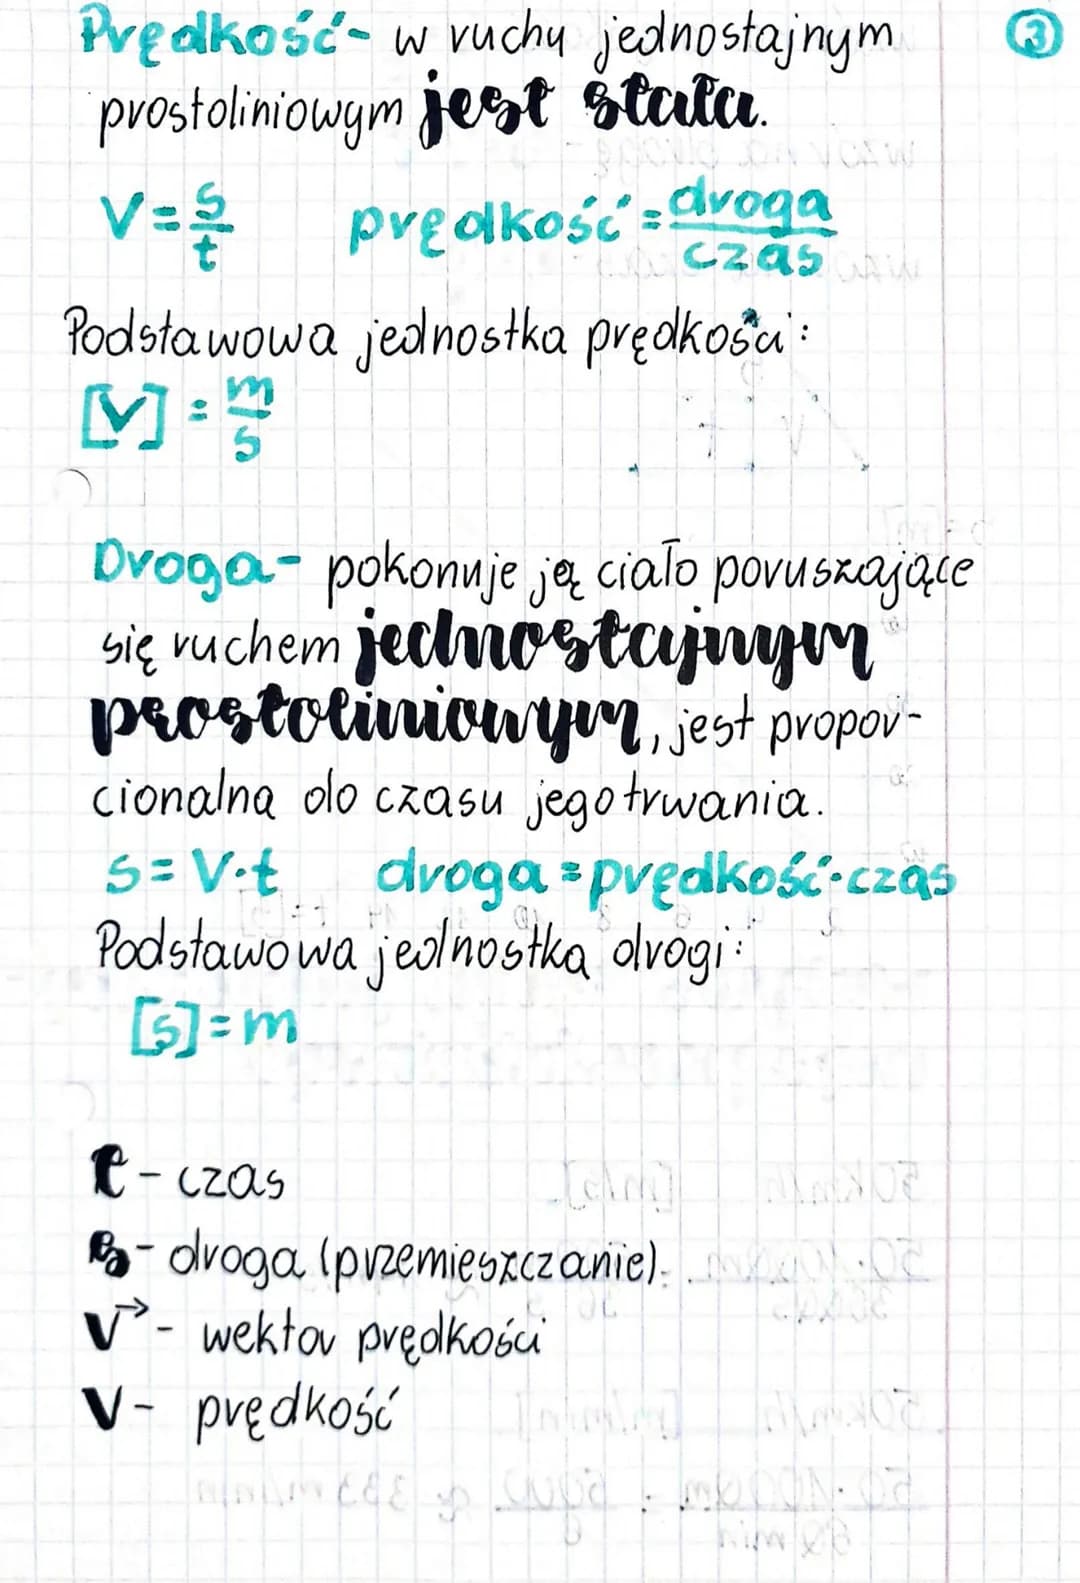 Prędkość- w ruchu jednostajnym ③
prostoliniowym jest stała.
V=s/t prędkość=droga/czas
Podstawowa jednostka prędkości:
[V]=m/s
Droga- pokonuje ją ciało poruszające
się ruchem jednostajnym
prostoliniowym, jest propor-
cionalna do czasu jego trwania.
s=V·t droga=prędkość·czas
Podstawowa jednostka drogi:
[s]=m
t-czas
s-droga (przemieszczanie).
V→- wektor prędkości
V- prędkość